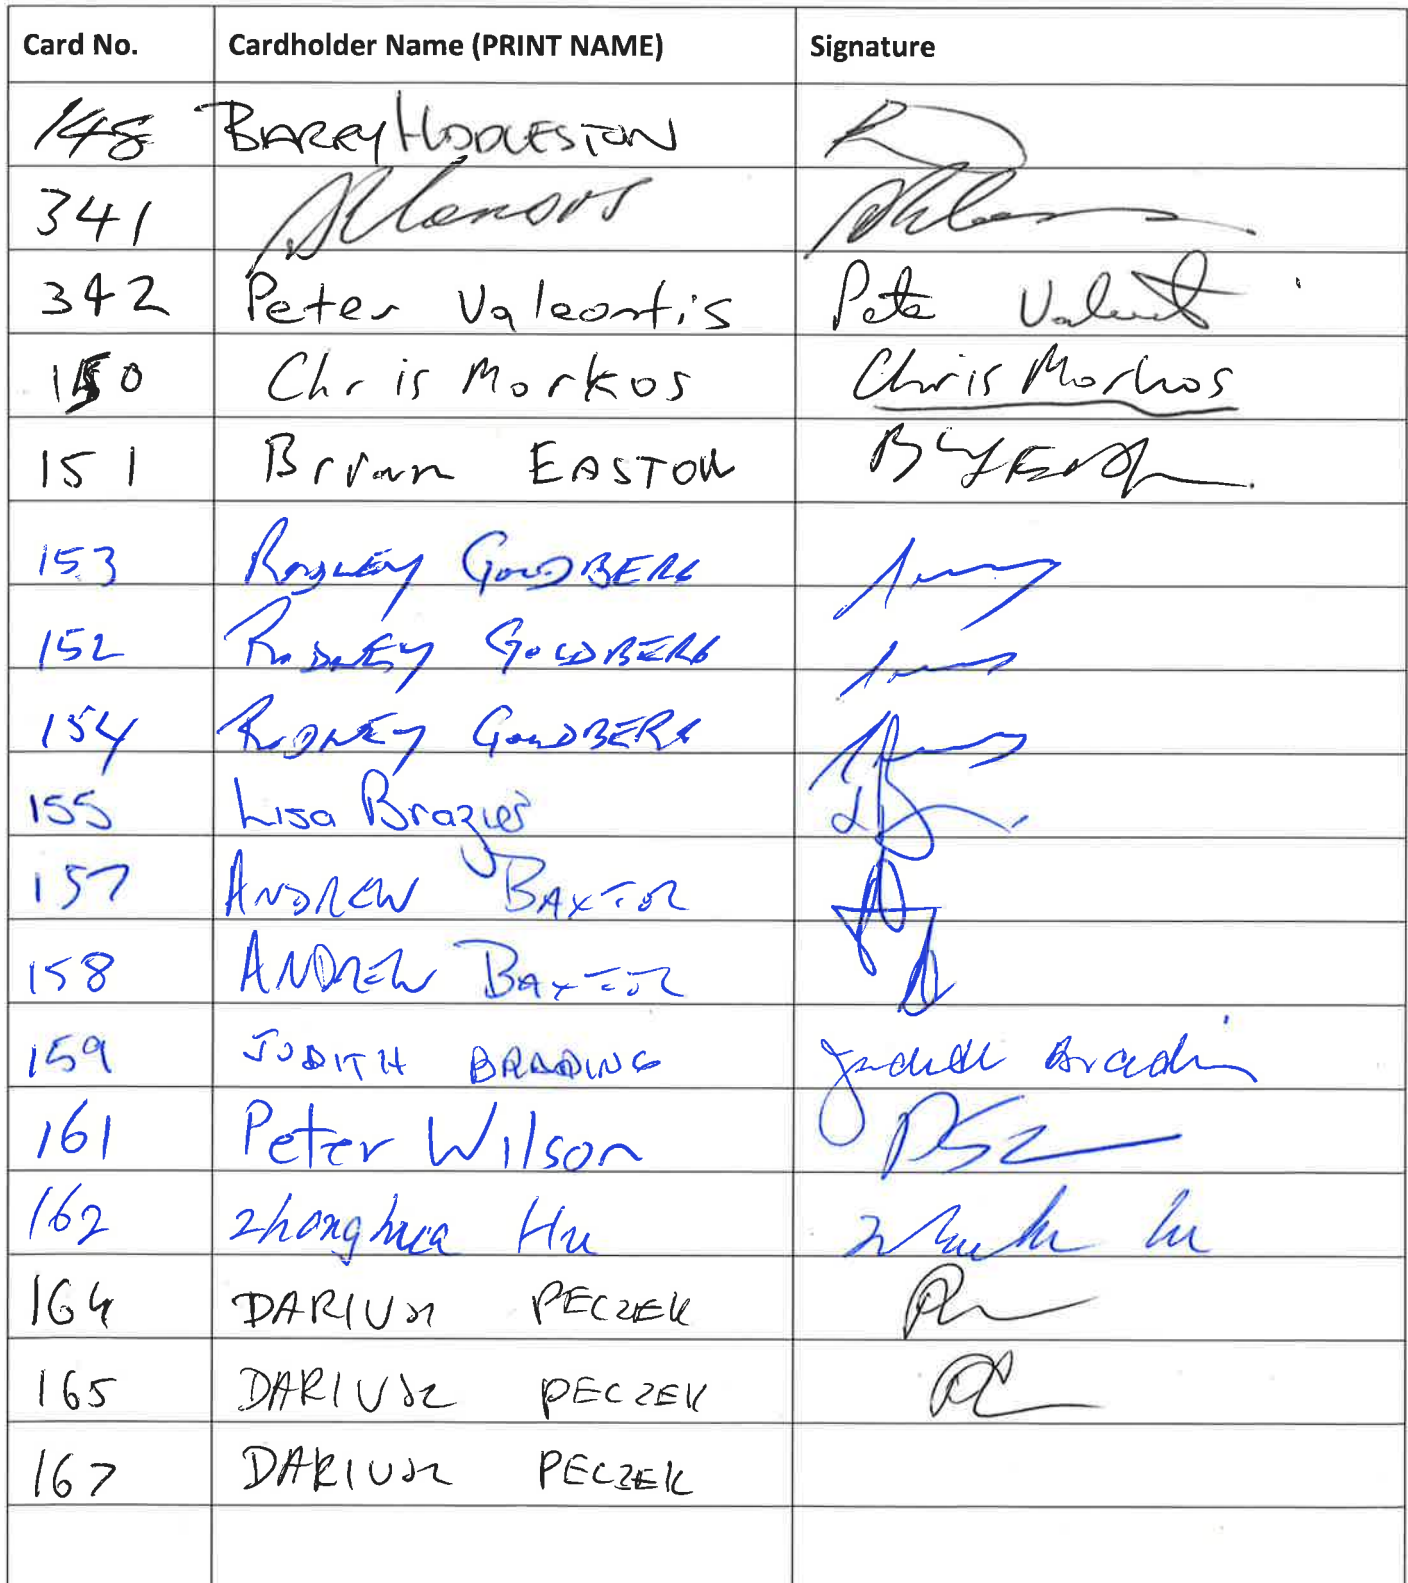 Card No. Cardholder Name (PRINT NAME) Signature
148 BARRY HODDLESTON
341
342 Peter Valeontis Pete
150 Chris Morkos Chris Morkos
151 Brian EASTON
153 RODNEY GOLDBERG
152 RODNEY GOLDBERG
154 RODNEY GOLDBERG
155 Lisa Brazier
157 ANDREW BAXTER
158 ANDREW BAXTER
159 JUDITH BRADING Judith Bradin
161 Peter Wilson
162 Zhonghua Hu
164 DARIUSZ PECZEK
165 DARIUSZ PECZEK
167 DARIUSZ PECZEK